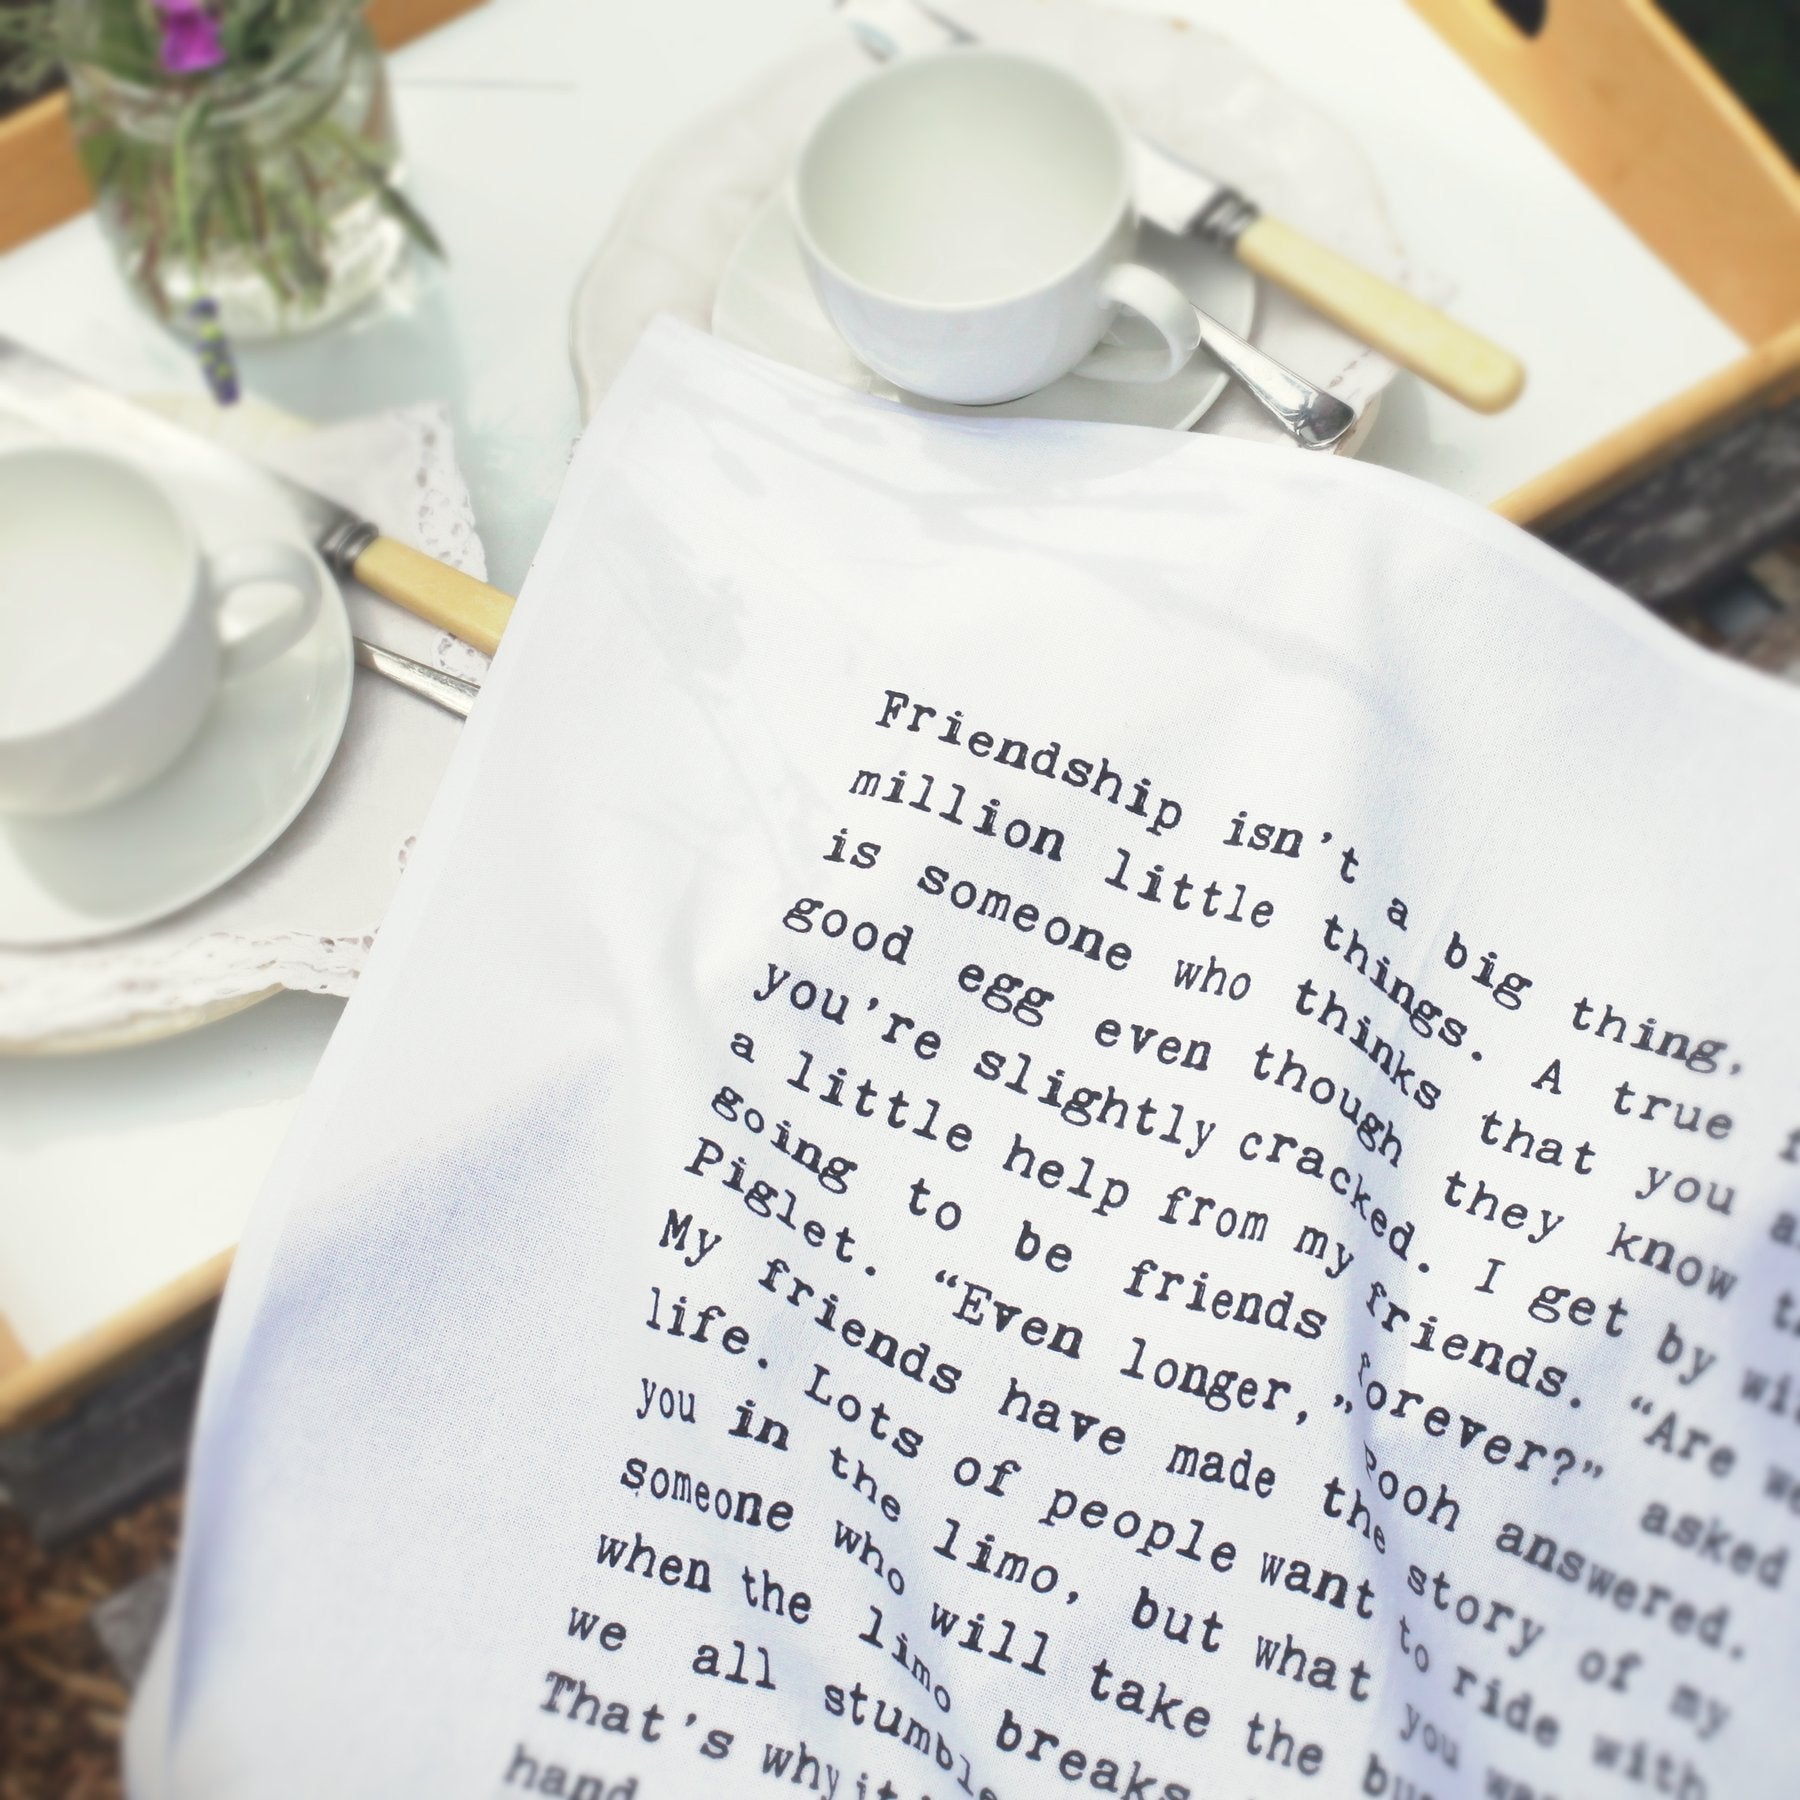 Friendship isn't a big thing,
million little things. A true
is someone who thinks that you
good egg even though they know
you're slightly cracked. I get by
a little help from my friends. “Are we
going to be friends forever?” asked
Piglet. “Even longer,” Pooh answered.
My friends have made the story of my
life. Lots of people want to ride with
you in the limo, but what you
someone who will take the
when the limo breaks
we all stumble
That's why
hand